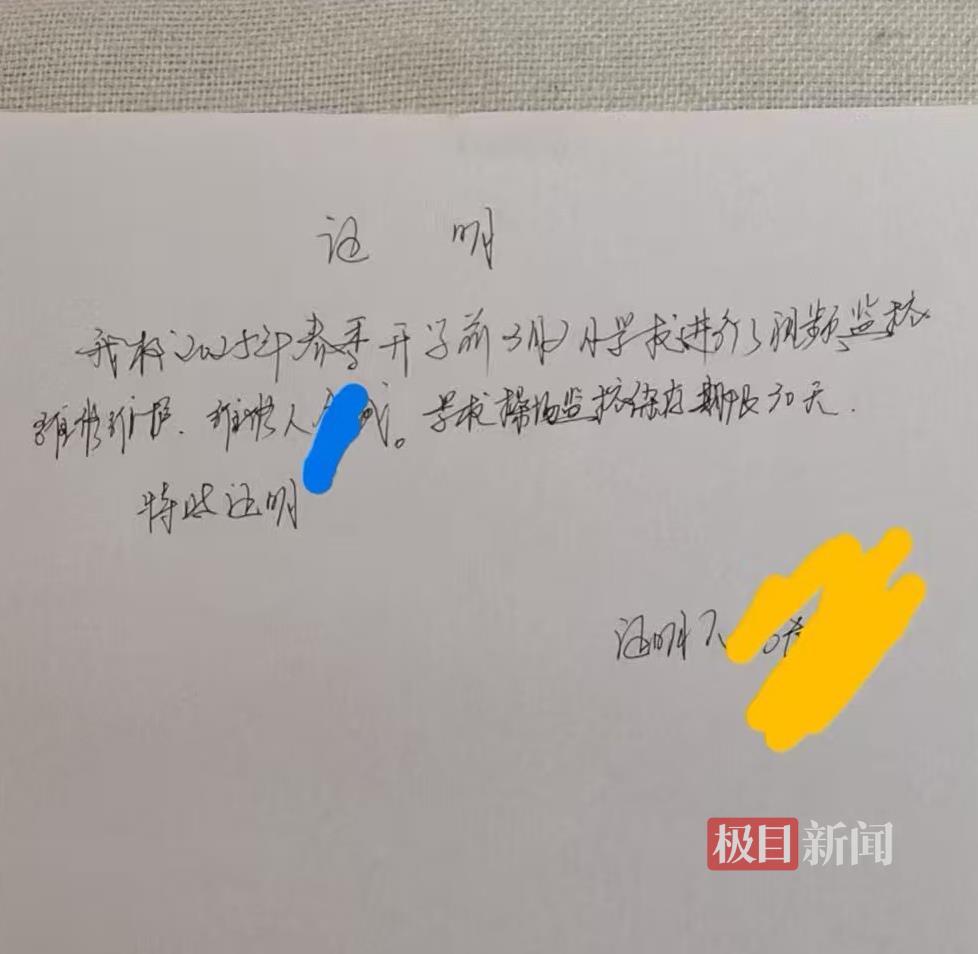 证 明
我校2025年春季开学前3月2日学校进行了视频监控
维修维护.维修人 成。学校操场监控保存期限30天.
特此证明
证明人
极目新闻